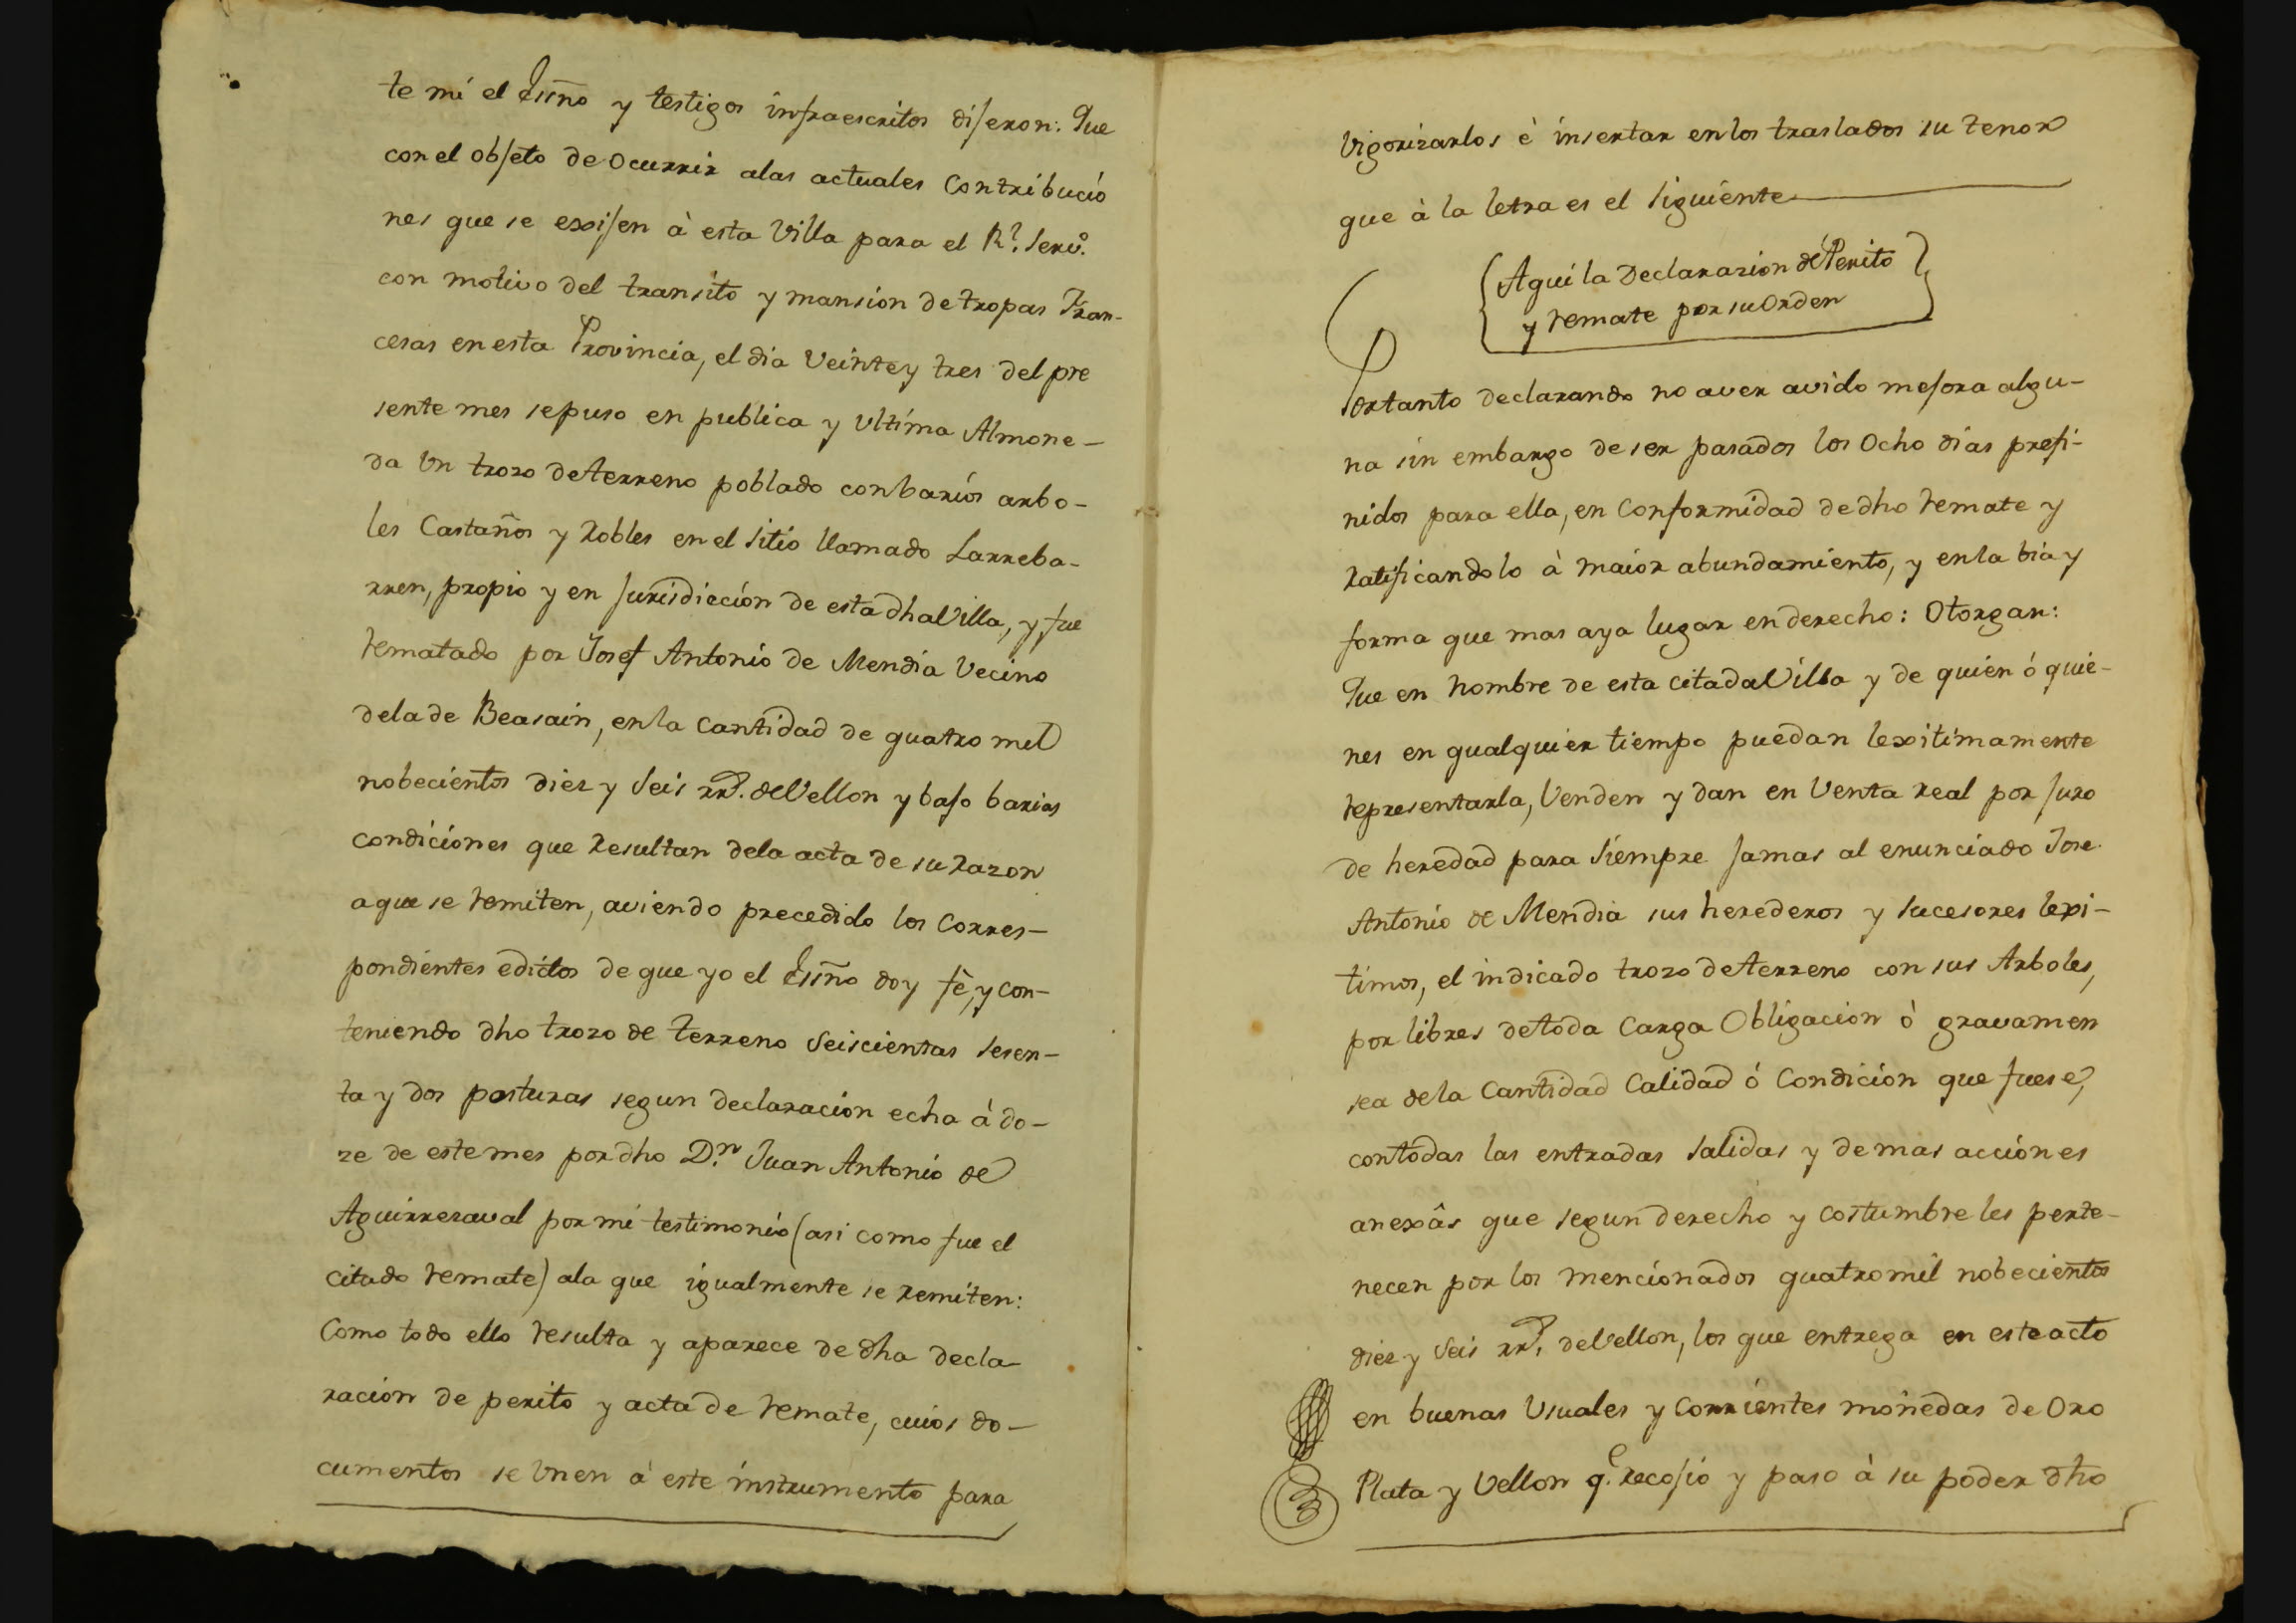 te mi el Essno y testigos infraescritos dijeron: Que
con el objeto de ocurrir alas actuales Contribucio
nes que se exijen à esta Villa para el Rl. servo.
con motivo del transito y mansion de tropas Fran-
cesas en esta Provincia, el dia Veinte y tres del pre
sente mes se puso en publica y Ultima Almone-
da Un trozo de terreno poblado con barios arbo-
les Castaños y Robles en el sitio llamado Larreba-
rren, propio y en jurisdiccion de esta dha Villa, y fue
rematado por Josef Antonio de Mendia Vecino
dela de Beasain, en la Cantidad de quatro mil
nobecientos diez y seis rrs. de Vellon y bajo barias
condiciones que resultan dela acta de su razon
a que se remiten, aviendo precedido los Corres-
pondientes edictos de que yo el Essno doy fè, y con-
teniendo dho trozo de terreno seiscientas sesen-
ta y dos posturas segun declaracion echa à do-
ze de este mes por dho Dn. Juan Antonio de
Aguirrezaval por mi testimonio (asi como fue el
citado remate) ala que igualmente se remiten:
Como todo ello resulta y aparece de dha decla-
racion de perito y acta de remate, cuios do-
cumentos se Unen à este instrumento para
Vigorizarlos è insertar en los traslados su tenor
que à la letra es el siguiente
Aqui la Declarazion de Perito
y remate por su Orden
Portanto declarando no aver avido mejora algu-
na sin embargo de ser pasados los Ocho dias prefi-
nidos para ella, en Conformidad de dho remate y
ratificandolo à maior abundamiento, y en la bia y
forma que mas aya lugar en derecho: Otorgan:
Que en nombre de esta citada Villa y de quien ó quie-
nes en qualquier tiempo puedan lexitimamente
representarla, Venden y dan en Venta real por juro
de heredad para siempre jamas al enunciado Jose
Antonio de Mendia sus herederos y sucesores lexi-
timos, el indicado trozo de terreno con sus Arboles,
por libres de toda Carga Obligacion ò gravamen
sea dela Cantidad Calidad ó Condicion que fuese,
con todas las entradas salidas y demas acciones
anexâs que segun derecho y costumbre les perte-
necen por los mencionados quatro mil nobecientos
diez y seis rrs. de Vellon, los que entrega en este acto
en buenas Usuales y Corrientes monedas de Oro
Plata y Vellon qe. recojio y paso à su poder dho